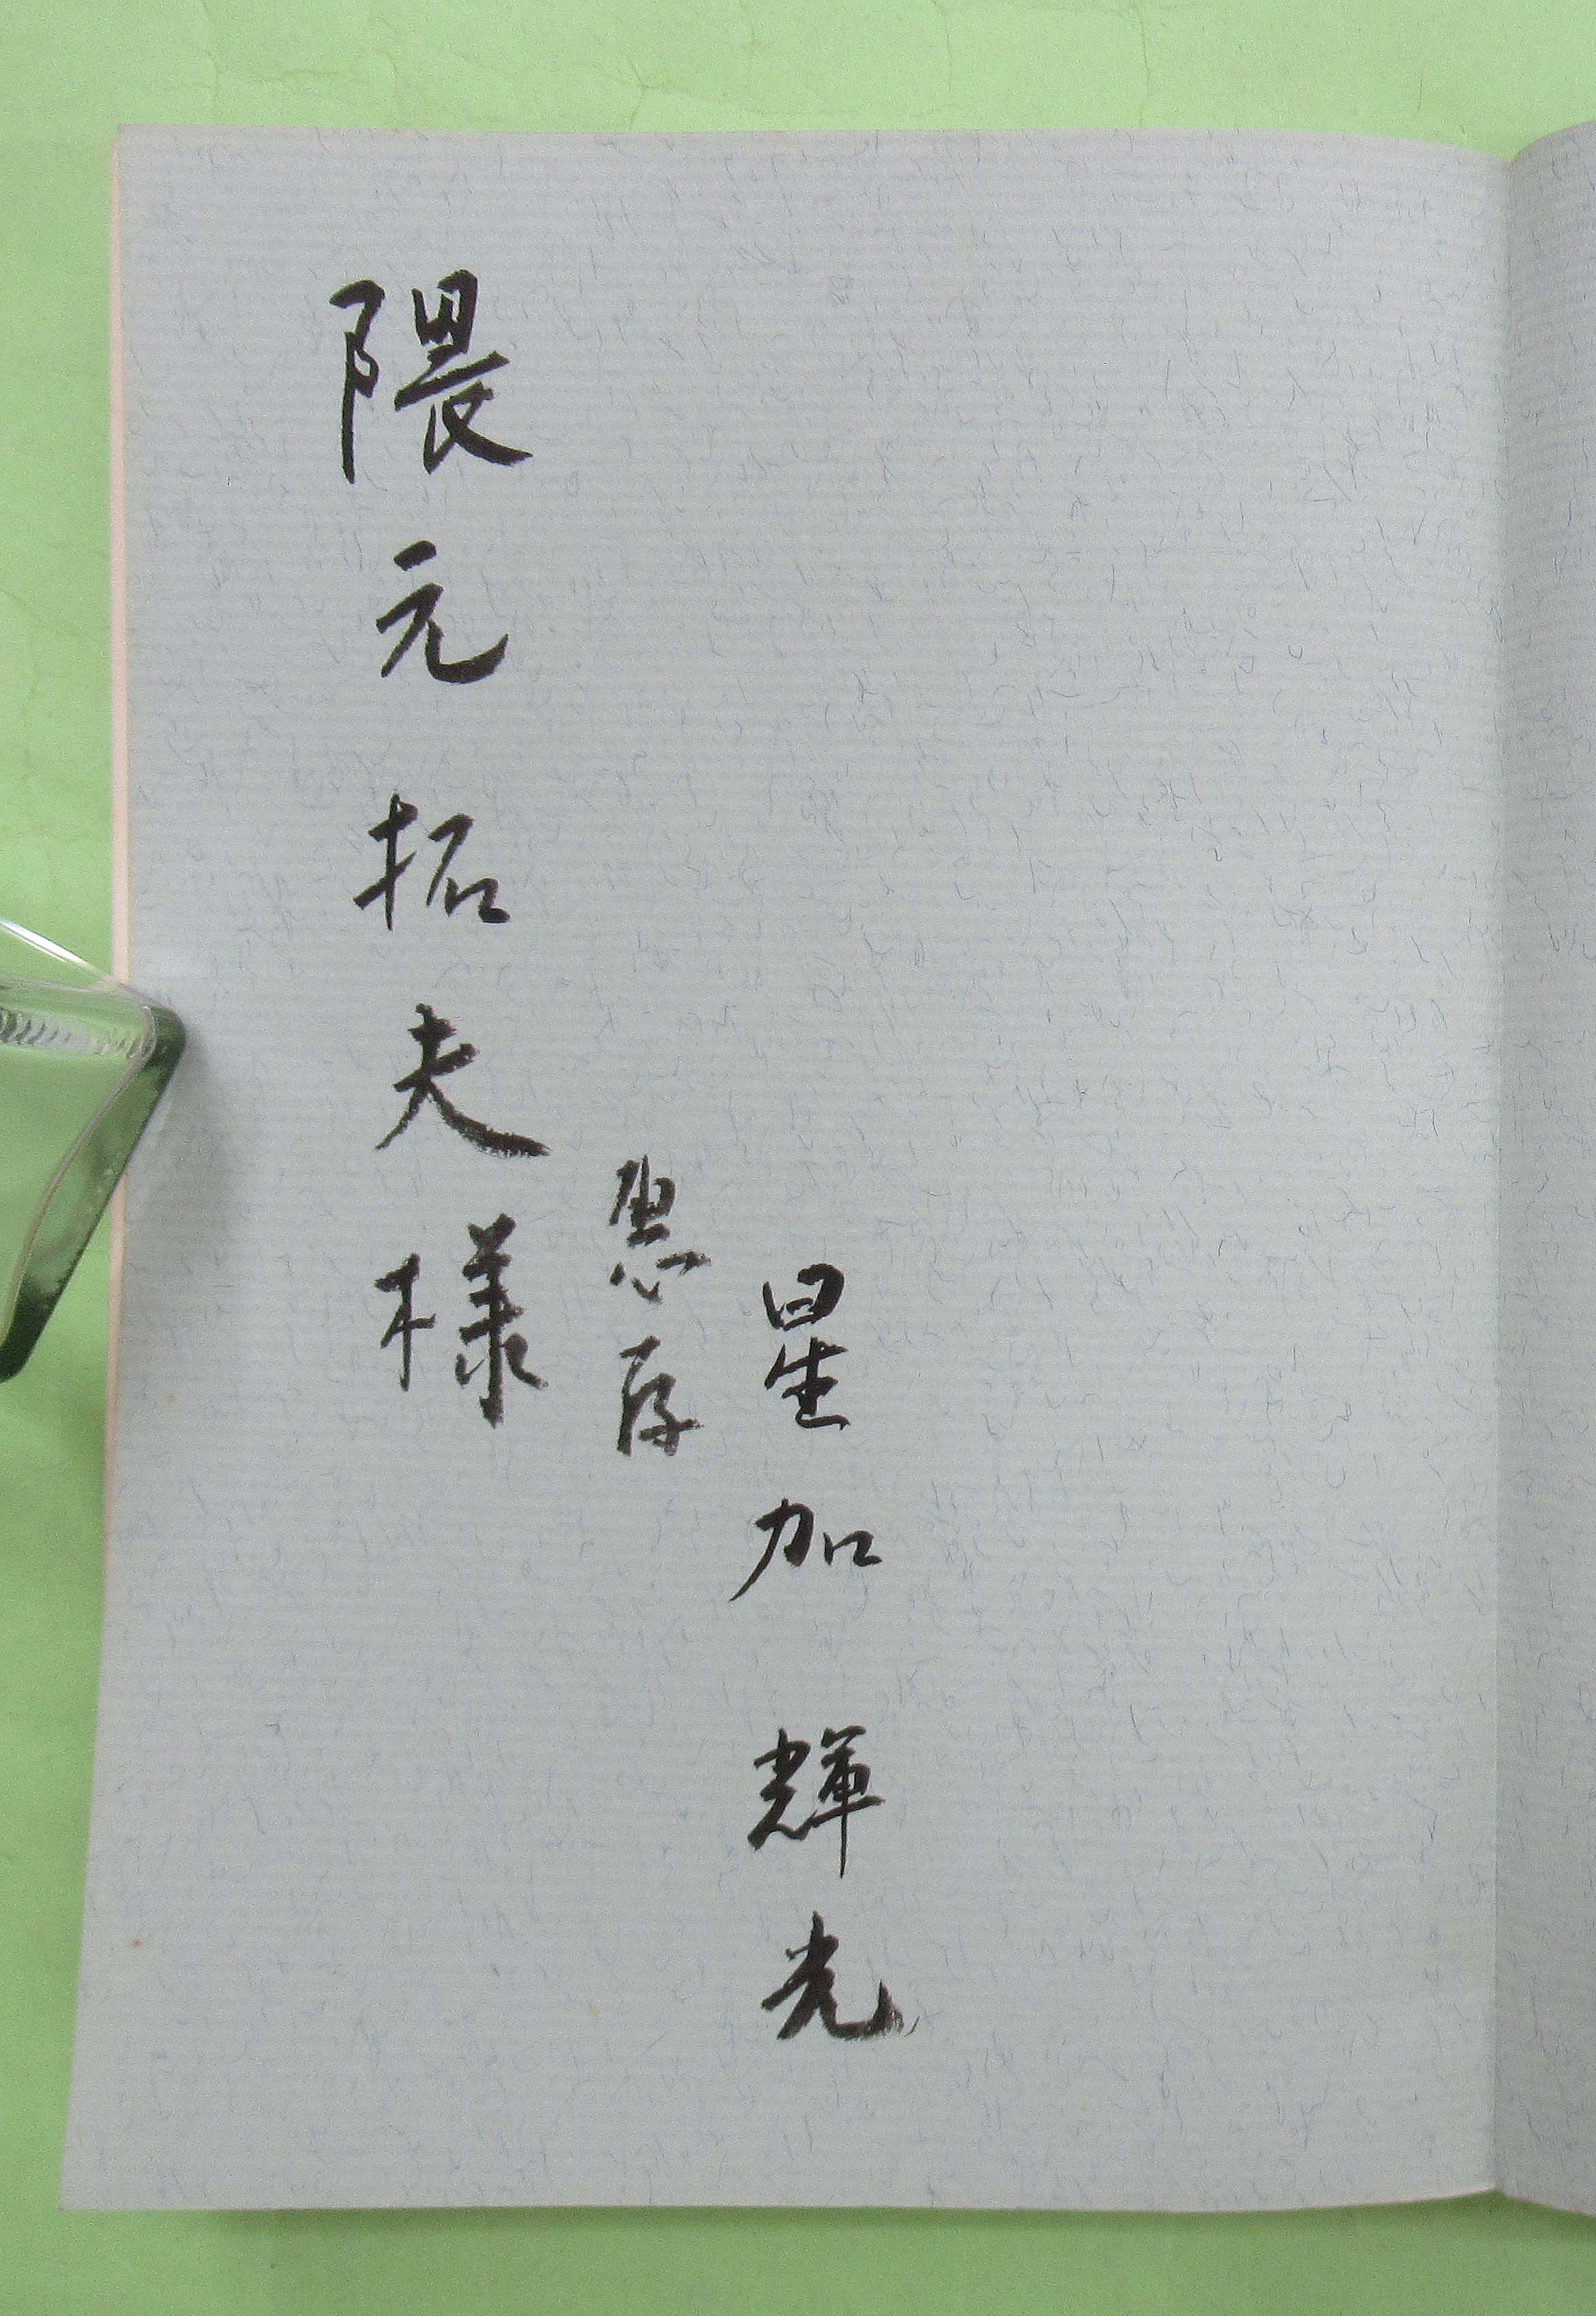 星加輝光
恵存
隈元拓夫様